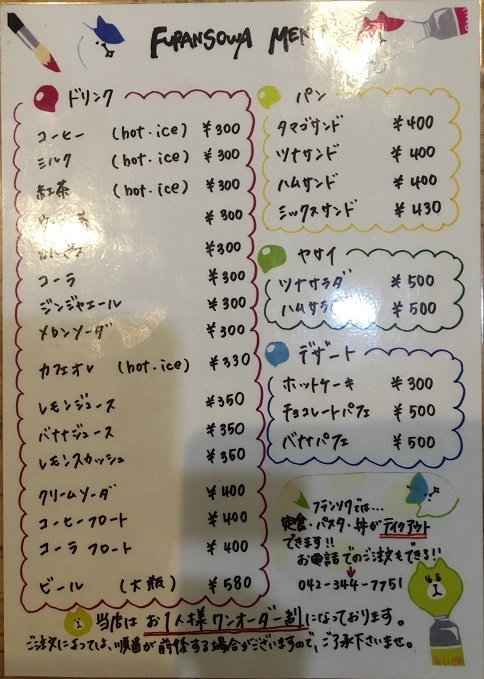 FUPANSOWA MENU
ドリンク
コーヒー (hot・ice) ¥300
ミルク (hot・ice) ¥300
紅茶 (hot・ice) ¥300
茶 ¥300
¥300
コーラ ¥300
ジンジャエール ¥300
メロンソーダ ¥300
カフェオレ (hot.ice) ¥330
レモンジュース ¥350
バナナジュース ¥350
レモンスカッシュ ¥350
クリームソーダ ¥400
コーヒーフロート ¥400
コーラフロート ¥400
ビール (大瓶) ¥580
パン
タマゴサンド ¥400
ツナサンド ¥400
ハムサンド ¥400
ミックスサンド ¥430
ヤサイ
ツナサラダ ¥500
ハムサラダ ¥500
デザート
ホットケーキ ¥300
チョコレートパフェ ¥500
バナナパフェ ¥500
フランソワでは...
定食・パスタ・丼がテイクアウト
できます!!
お電話でのご注文もできる!!
042-344-7751
当店はお1人様ワンオーダー制になっております。
ご注文によっては、順番が前後する場合がございますので、ご了承下さいませ。